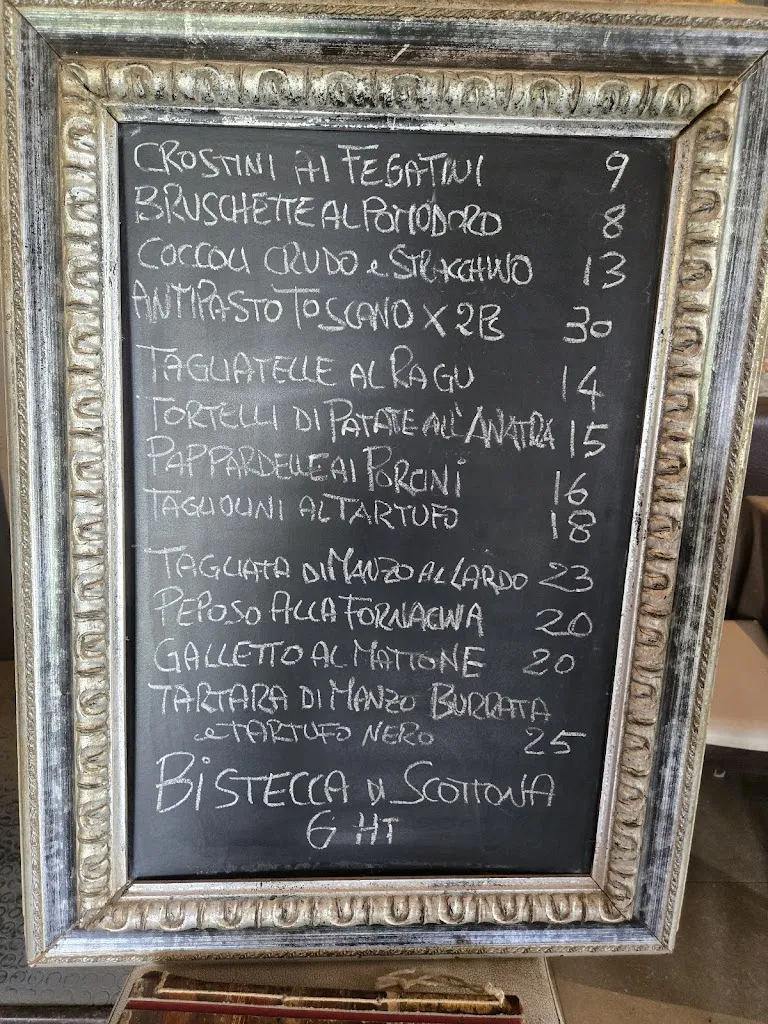 CROSTINI AI FEGATINI 9
BRUSCHETTE AL POMODORO 8
COCCOLI CRUDO e STRACCHINO 13
ANTIPASTO TOSCANO X 2P 30
TAGLIATELLE AL RAGU 14
TORTELLI DI PATATE ALL'ANATRA 15
PAPPARDELLE AI PORCINI 16
TAGLIOLINI AL TARTUFO 18
TAGLIATA DI MANZO AL LARDO 23
PEPOSO ALLA FORNACINA 20
GALLETTO AL MATTONE 20
TARTARA DI MANZO BURRATA
e TARTUFO NERO 25
BISTECCA DI SCOTTONA
6 HT